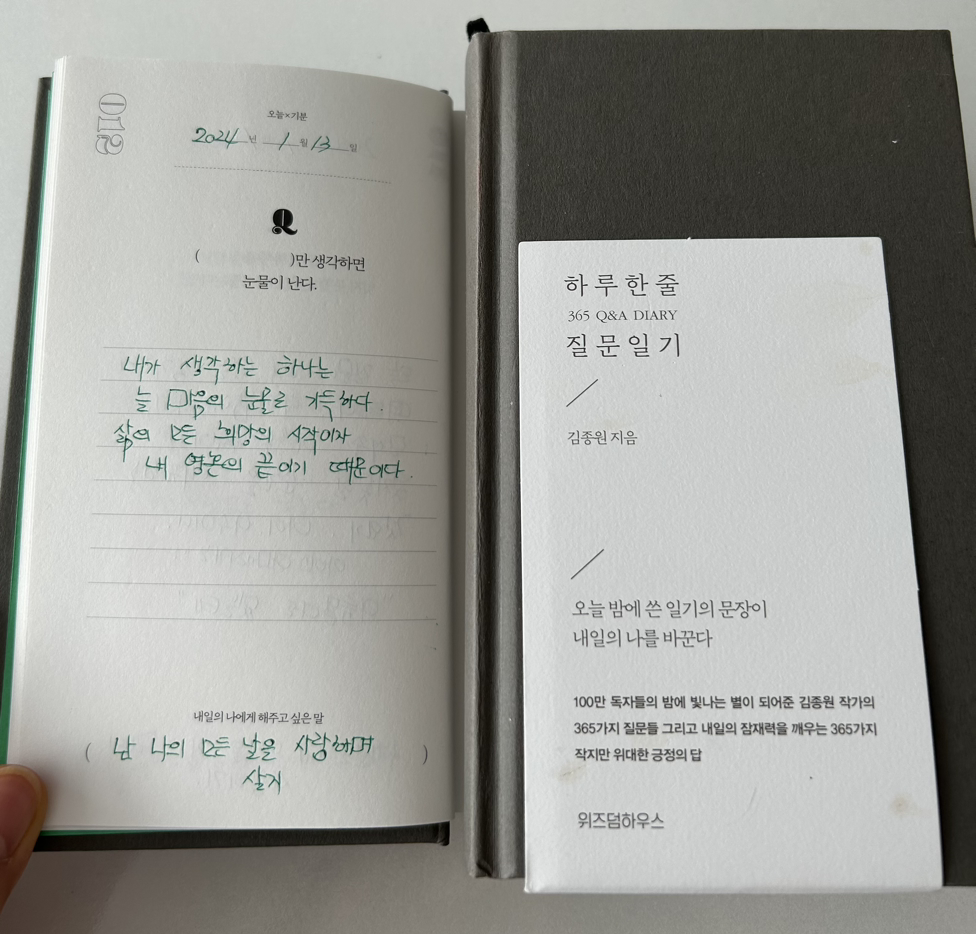 012
오늘×기분
2024년 1월 13일
Q
( )만 생각하면
눈물이 난다.
내가 생각하는 하나는
늘 마음의 눈물로 가득하다.
삶의 모든 희망의 시작이자
내 영혼의 끝이기 때문이다.
내일의 나에게 해주고 싶은 말
( 난 나의 모든 날을 사랑하며 )
살지
하루 한 줄
365 Q&A DIARY
질문 일기
김종원 지음
오늘 밤에 쓴 일기의 문장이
내일의 나를 바꾼다
100만 독자들의 밤에 빛나는 별이 되어준 김종원 작가의
365가지 질문들 그리고 내일의 잠재력을 깨우는 365가지
작지만 위대한 긍정의 답
위즈덤하우스